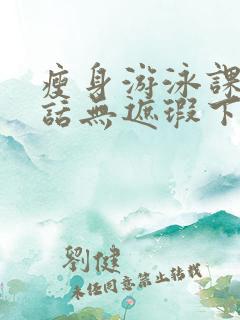 瘦身游泳課
話無遮瑕下
劉健
未任同意禁止轉載